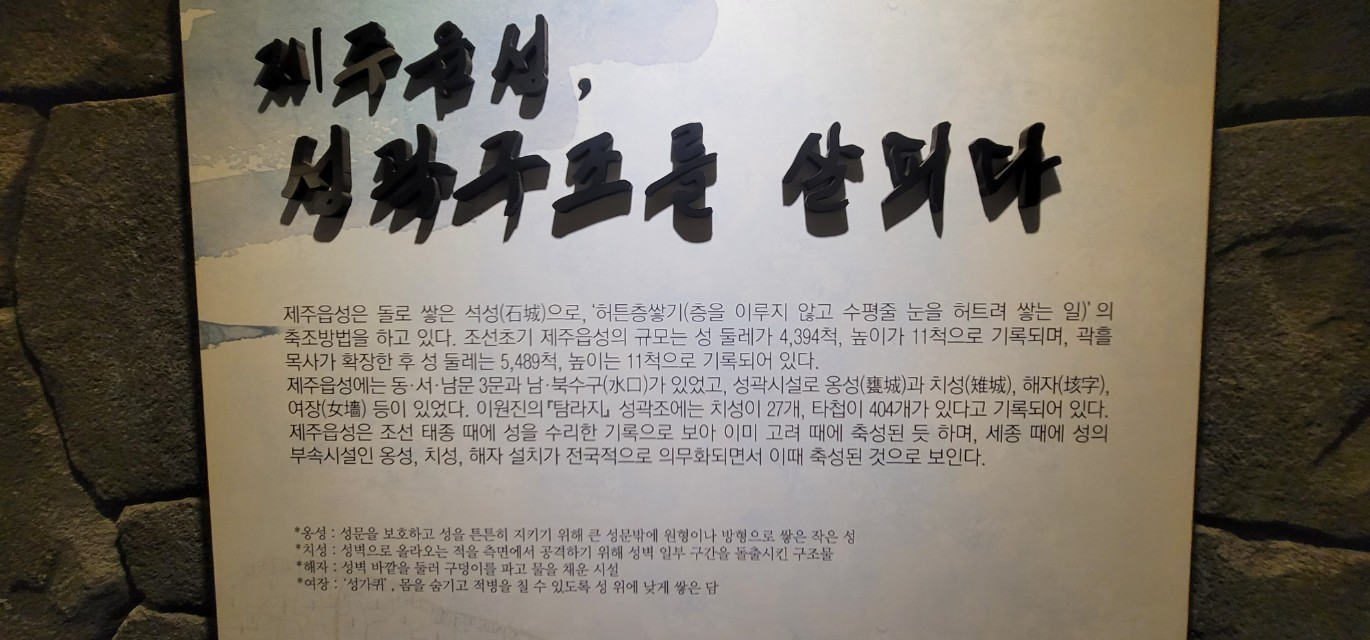 제주읍성,
성곽구조를 살피다
제주읍성은 돌로 쌓은 석성(石城)으로, '허튼층쌓기(층을 이루지 않고 수평줄 눈을 허트려 쌓는 일)' 의
축조방법을 하고 있다. 조선초기 제주읍성의 규모는 성 둘레가 4,394척, 높이가 11척으로 기록되며, 곽흘
목사가 확장한 후 성 둘레는 5,489척, 높이는 11척으로 기록되어 있다.
제주읍성에는 동·서·남문 3문과 남·북수구(水口)가 있었고, 성곽시설로 옹성(甕城)과 치성(雉城), 해자(垓字),
여장(女墻) 등이 있었다. 이원진의『탐라지』 성곽조에는 치성이 27개, 타첩이 404개가 있다고 기록되어 있다.
제주읍성은 조선 태종 때에 성을 수리한 기록으로 보아 이미 고려 때에 축성된 듯 하며, 세종 때에 성의
부속시설인 옹성, 치성, 해자 설치가 전국적으로 의무화되면서 이때 축성된 것으로 보인다.
*옹성 : 성문을 보호하고 성을 튼튼히 지키기 위해 큰 성문밖에 원형이나 방형으로 쌓은 작은 성
*치성 : 성벽으로 올라오는 적을 측면에서 공격하기 위해 성벽 일부 구간을 돌출시킨 구조물
*해자 : 성벽 바깥을 둘러 구덩이를 파고 물을 채운 시설
*여장 : '성가퀴', 몸을 숨기고 적병을 칠 수 있도록 성 위에 낮게 쌓은 담